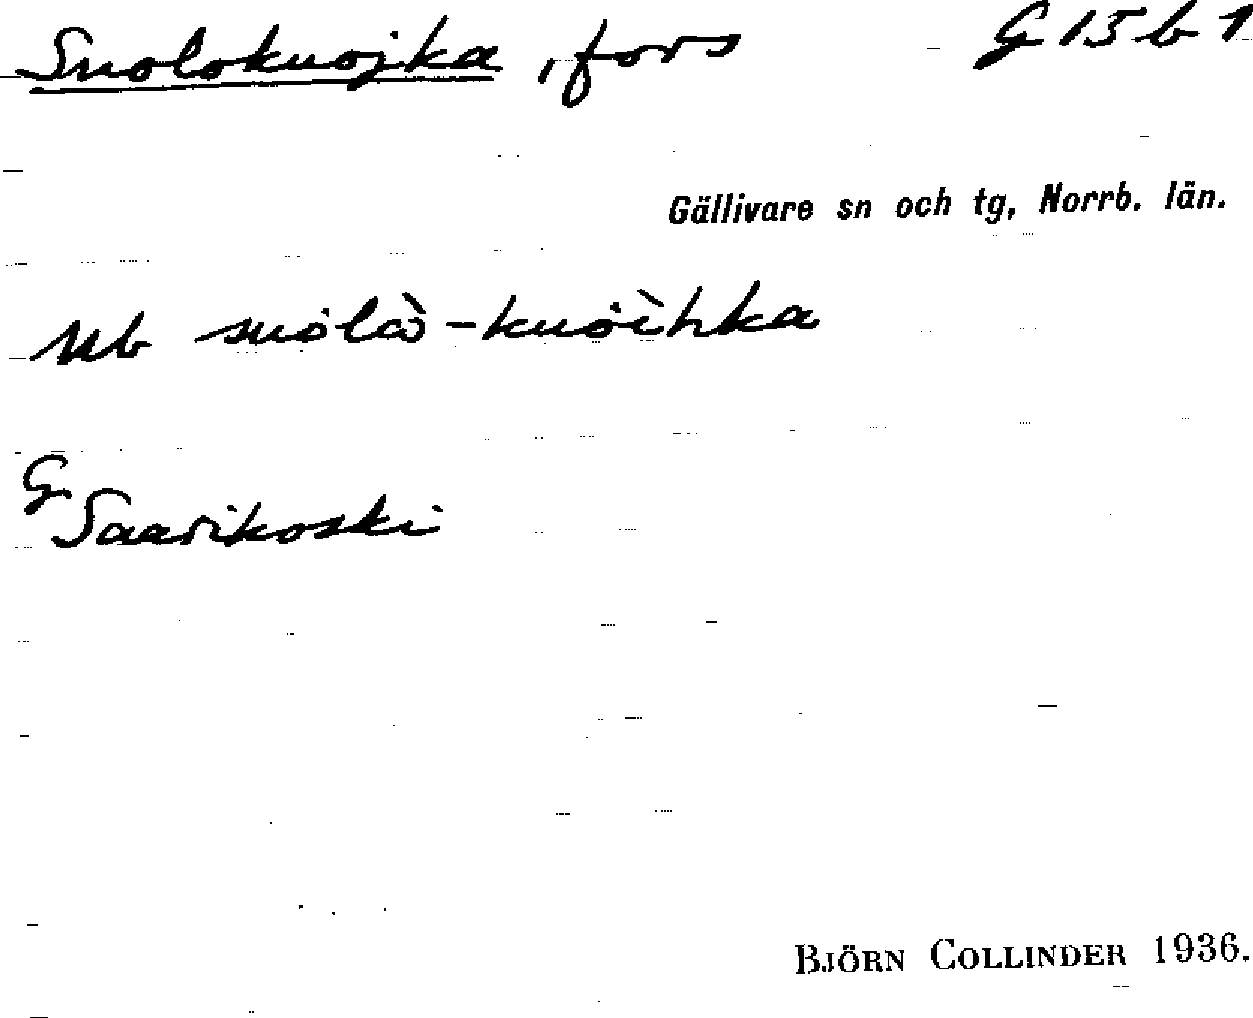 Suolokuojka, fors G 15 b 1
Gällivare sn och tg, Norrb. län.
Ub suolò-kuoihka
G
Saarikoski
BJÖRN COLLINDER 1936.